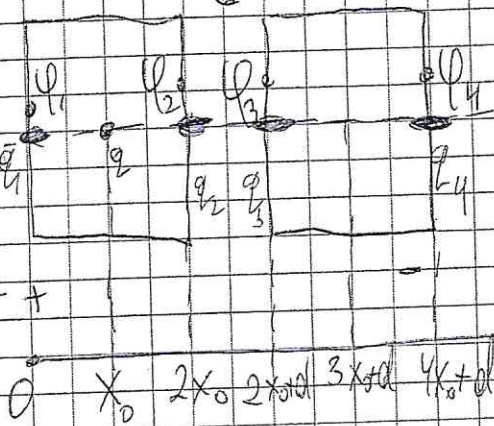 φ₁ φ₂ φ₃ φ₄
q₁ q q₂ q₃ q₄
-
- +
0 x₀ 2x₀ 2x₀+d 3x₀+d 4x₀+d